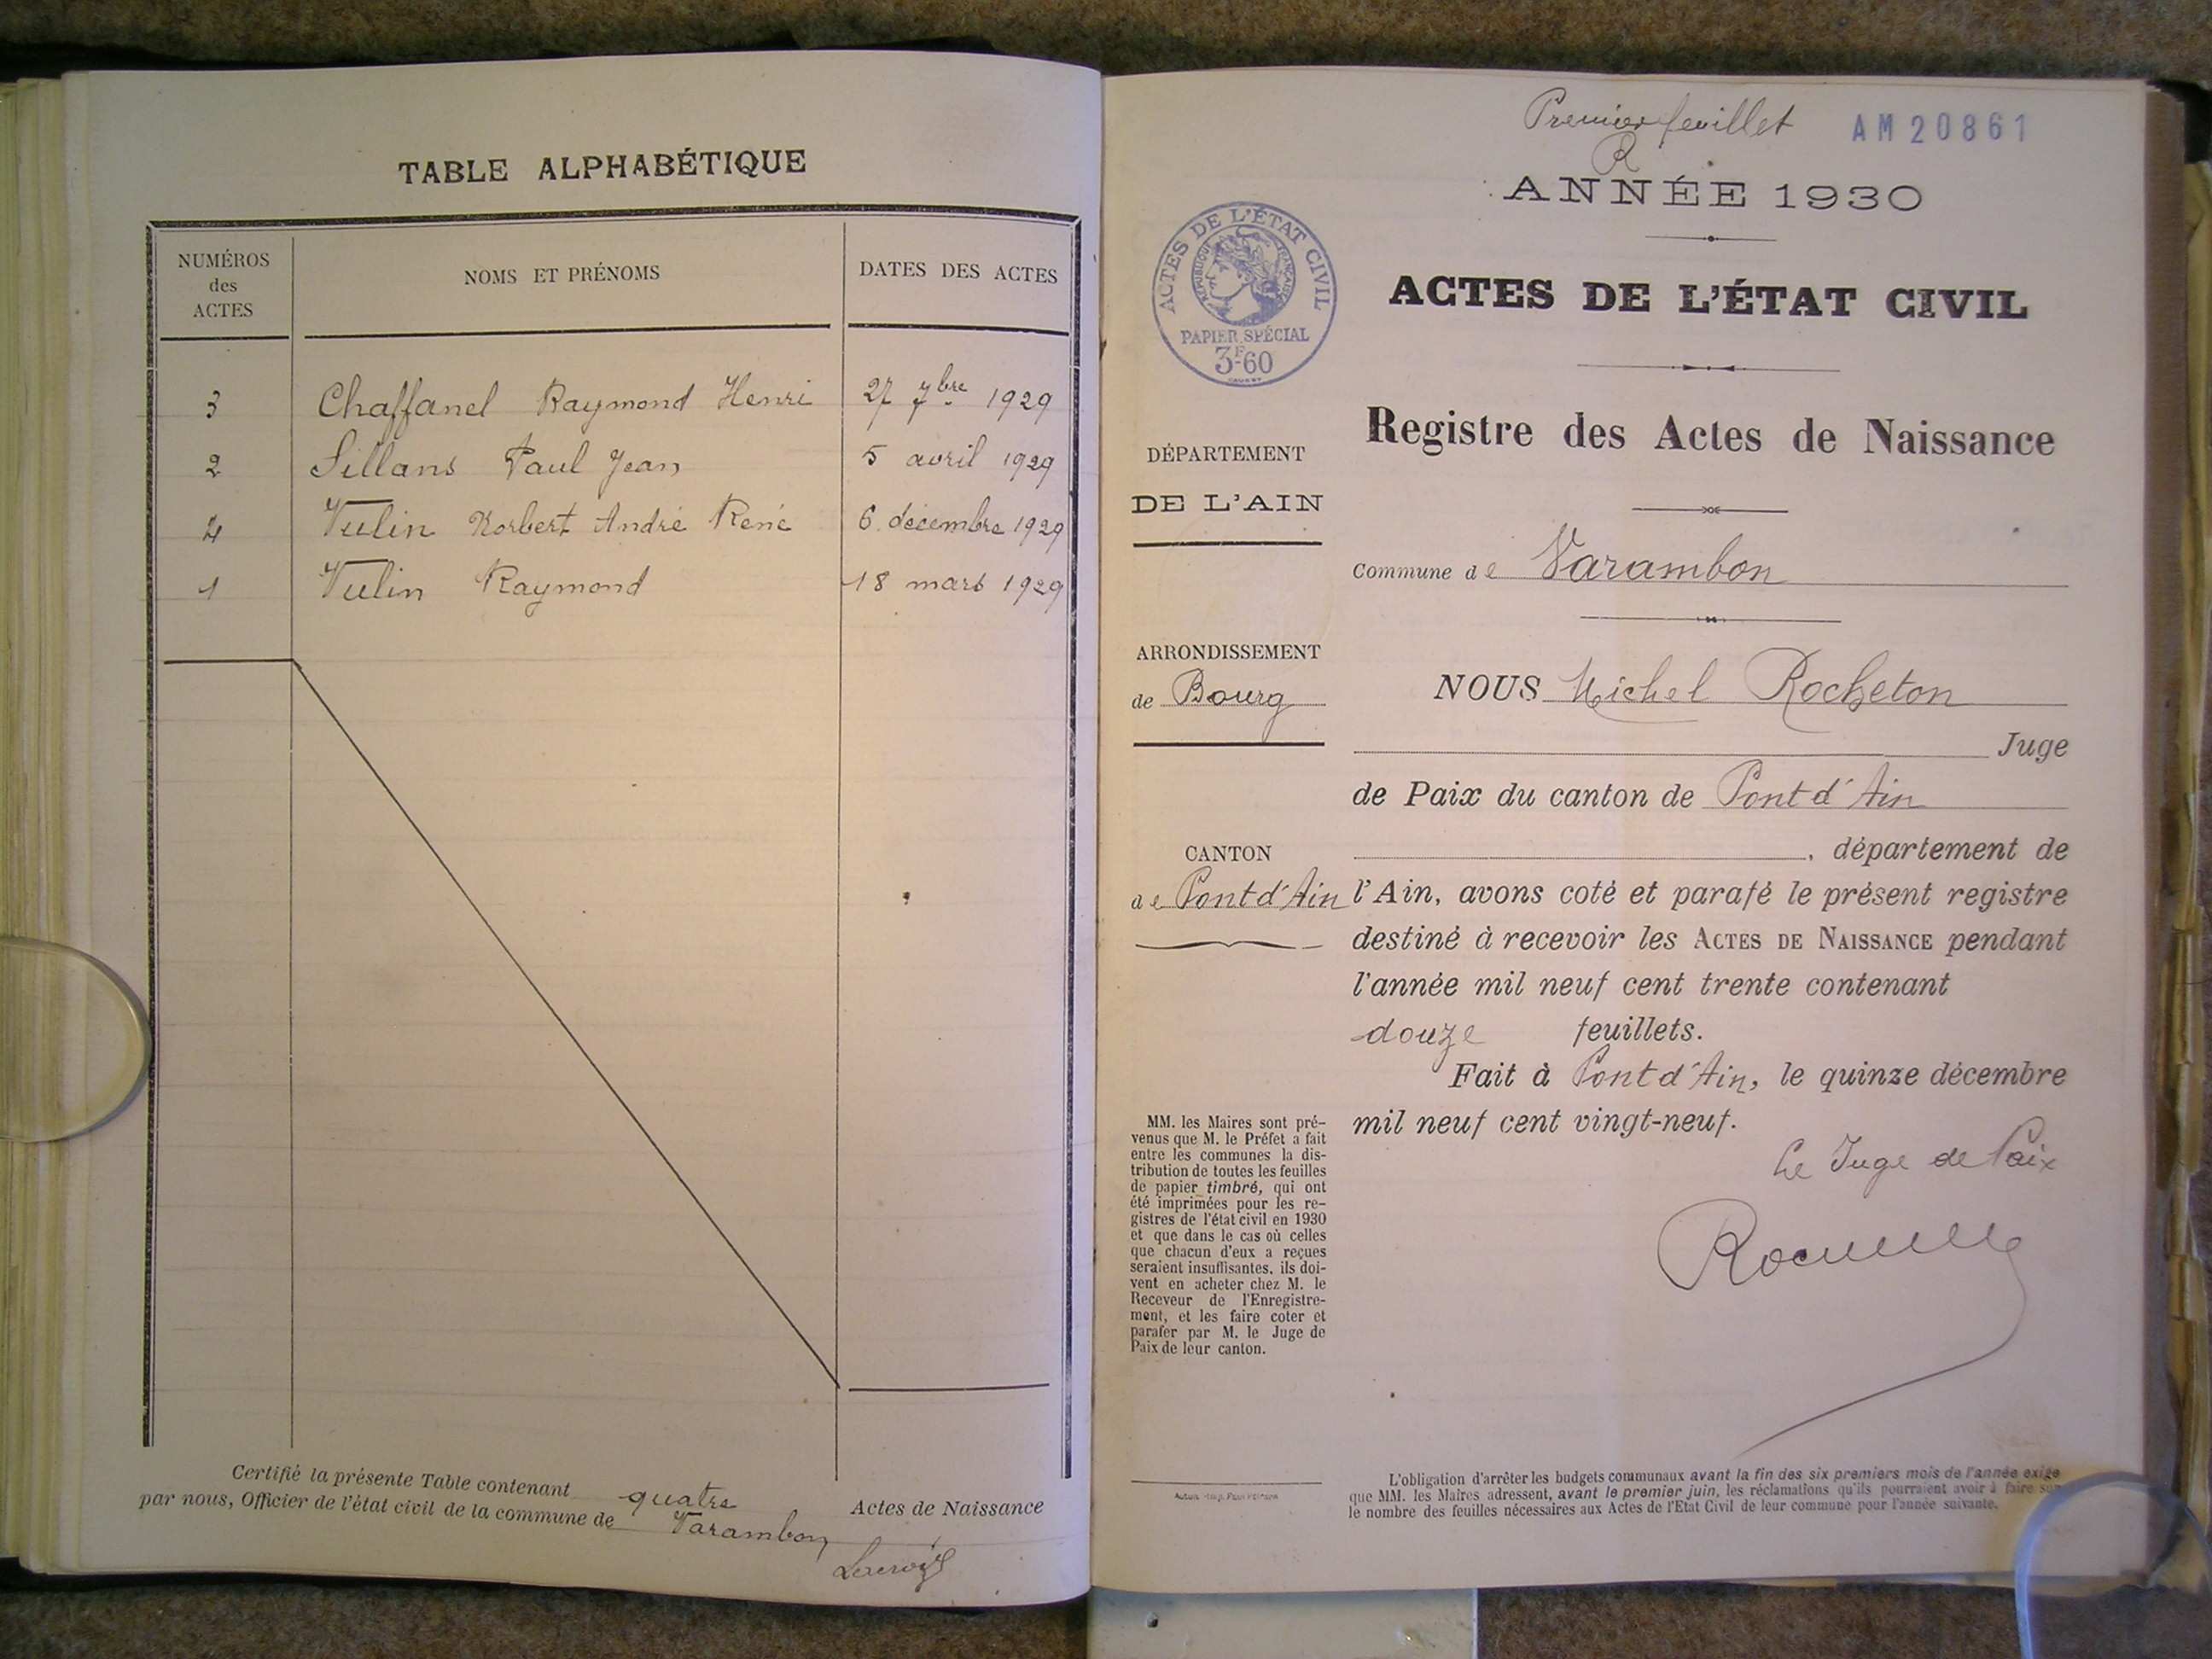 TABLE ALPHABÉTIQUE
NUMÉROS
des
ACTES
NOMS ET PRÉNOMS
DATES DES ACTES
3 Chaffanel Raymond Henri 27 7bre 1929
2 Sillans Paul Jean 5 avril 1929
4 Vulin Norbert André René 6 décembre 1929
1 Vulin Raymond 18 mars 1929
Certifié la présente Table contenant quatre Actes de Naissance
par nous, Officier de l'état civil de la commune de Varambon
Premier feuillet
AM 20861
R
ANNÉE 1930
ACTES DE L'ÉTAT CIVIL
RÉPUBLIQUE FRANÇAISE
PAPIER SPÉCIAL
3F60
ACTES DE L'ÉTAT CIVIL
Registre des Actes de Naissance
DÉPARTEMENT
DE L'AIN
Commune de Varambon
ARRONDISSEMENT
de Bourg
CANTON
de Pont d'Ain
NOUS Michel Rocheton
Juge
de Paix du canton de Pont d'Ain
, département de
l'Ain, avons coté et parafé le présent registre
destiné à recevoir les ACTES DE NAISSANCE pendant
l'année mil neuf cent trente contenant
douze feuillets.
Fait à Pont d'Ain, le quinze décembre
mil neuf cent vingt-neuf.
Le Juge de Paix
MM. les Maires sont pré-
venus que M. le Préfet a fait
entre les communes la dis-
tribution de toutes les feuilles
de papier timbré, qui ont
été imprimées pour les re-
gistres de l'état civil en 1930
et que dans le cas où celles
que chacun d'eux a reçues
seraient insuffisantes, ils doi-
vent en acheter chez M. le
Receveur de l'Enregistre-
ment, et les faire coter et
parafer par M. le Juge de
Paix de leur canton.
L'obligation d'arrêter les budgets communaux avant la fin des six premiers mois de l'année exige
que MM. les Maires adressent, avant le premier juin, les réclamations qu'ils pourraient avoir à faire sur
le nombre des feuilles nécessaires aux Actes de l'Etat Civil de leur commune pour l'année suivante.